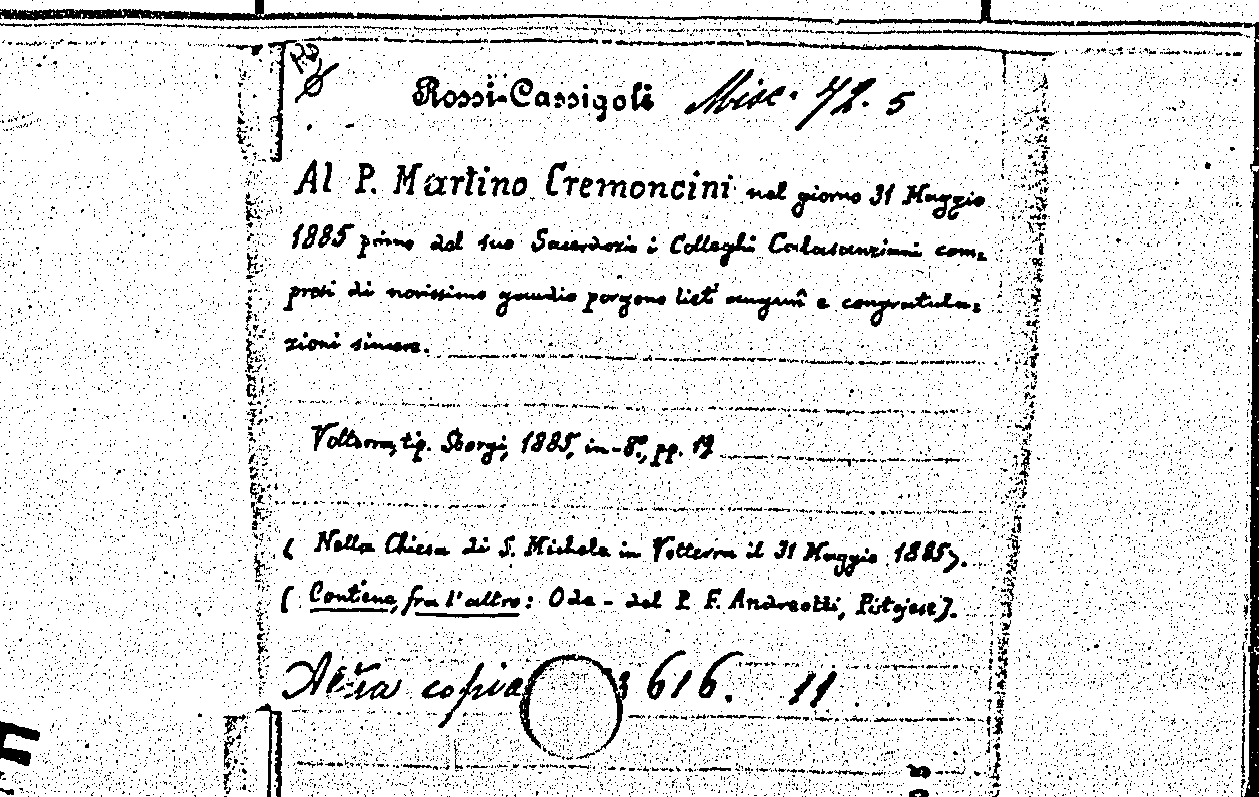 Rossi-Cassigoli Misc. 72. 5
Al P. Martino Cremoncini nel giorno 31 Maggio
1885 primo del suo Sacerdozio i Colleghi Calasanziani com-
presi di novissimo gaudio porgono lieti augurî e congratula-
zioni sincere.
Volterra, tip. Sborgi, 1885, in-8°, pp. 12
( Nella Chiesa di S. Michele in Volterra il 31 Maggio 1885).
[ Contiene, fra l'altro: Ode - del P. F. Andreotti, Pistojese].
Altra copia 616. 11